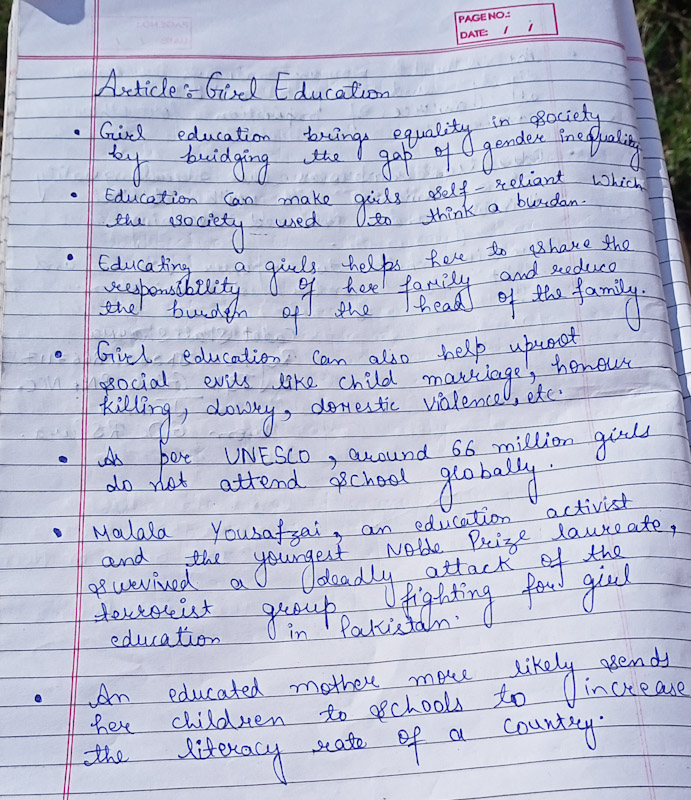 PAGE NO.:
DATE: / /
Article :- Girl Education
• Girl education brings equality in society
by bridging the gap of gender inequality
• Education can make girls self-reliant which
the society used to think a burdan.
• Educating a girls helps her to share the
responsibility of her family and reduce
the burden of the head of the family.
• Girl education can also help uproot
social evils like child marriage, honour
killing, dowry, domestic violence, etc.
• As per UNESCO, around 66 million girls
do not attend school globally.
• Malala Yousafzai, an education activist
and the youngest Noble Prize laureate,
survived a deadly attack of the
terrorist group fighting for girl
education in Pakistan.
• An educated mother more likely sends
her children to schools to increase
the literacy rate of a country.